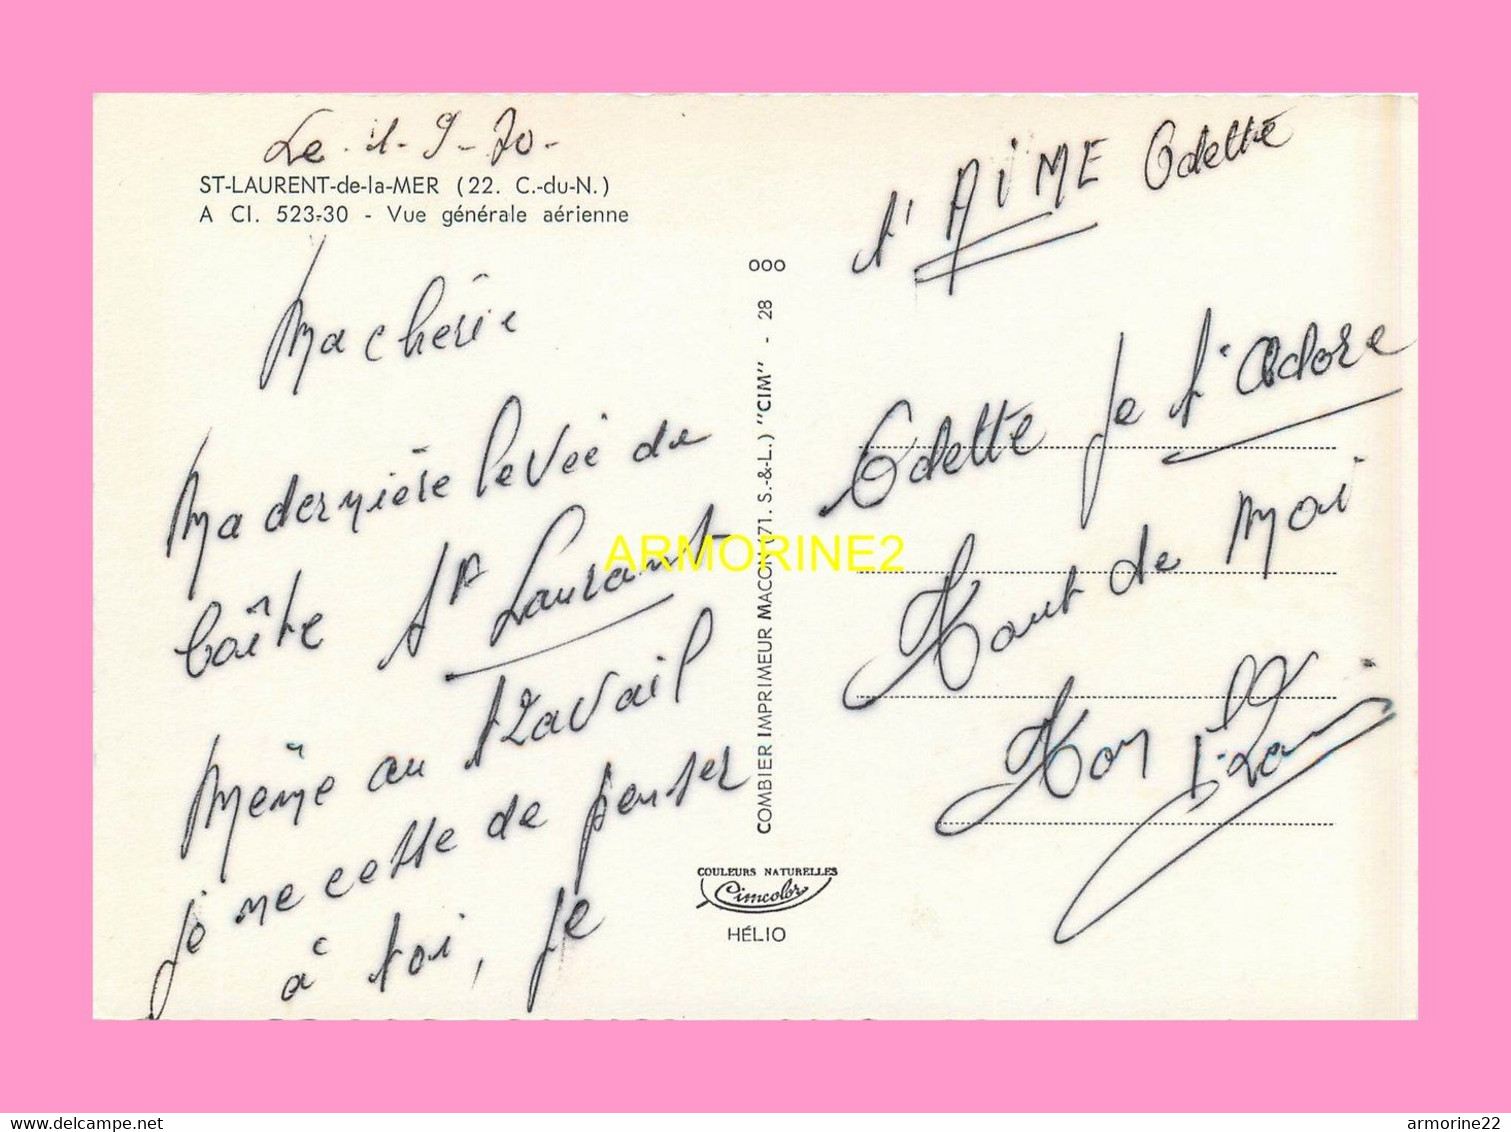 Le 11-9-70-
ST-LAURENT-de-la-MER (22. C.-du-N.)
A CI. 523-30 - Vue générale aérienne
Ma chérie
Ma dernière levée de
boîte St Laurent
Même au travail
je ne cesse de penser
à toi, je
ooo
COMBIER IMPRIMEUR MACON (71. S.-&-L.) "CIM" - 28
COULEURS NATURELLES
Cimcolor
HÉLIO
t'AIME Odette
Odette je t'adore
de moi
Ton
ARMORINE2
delcampe.net
armorine22